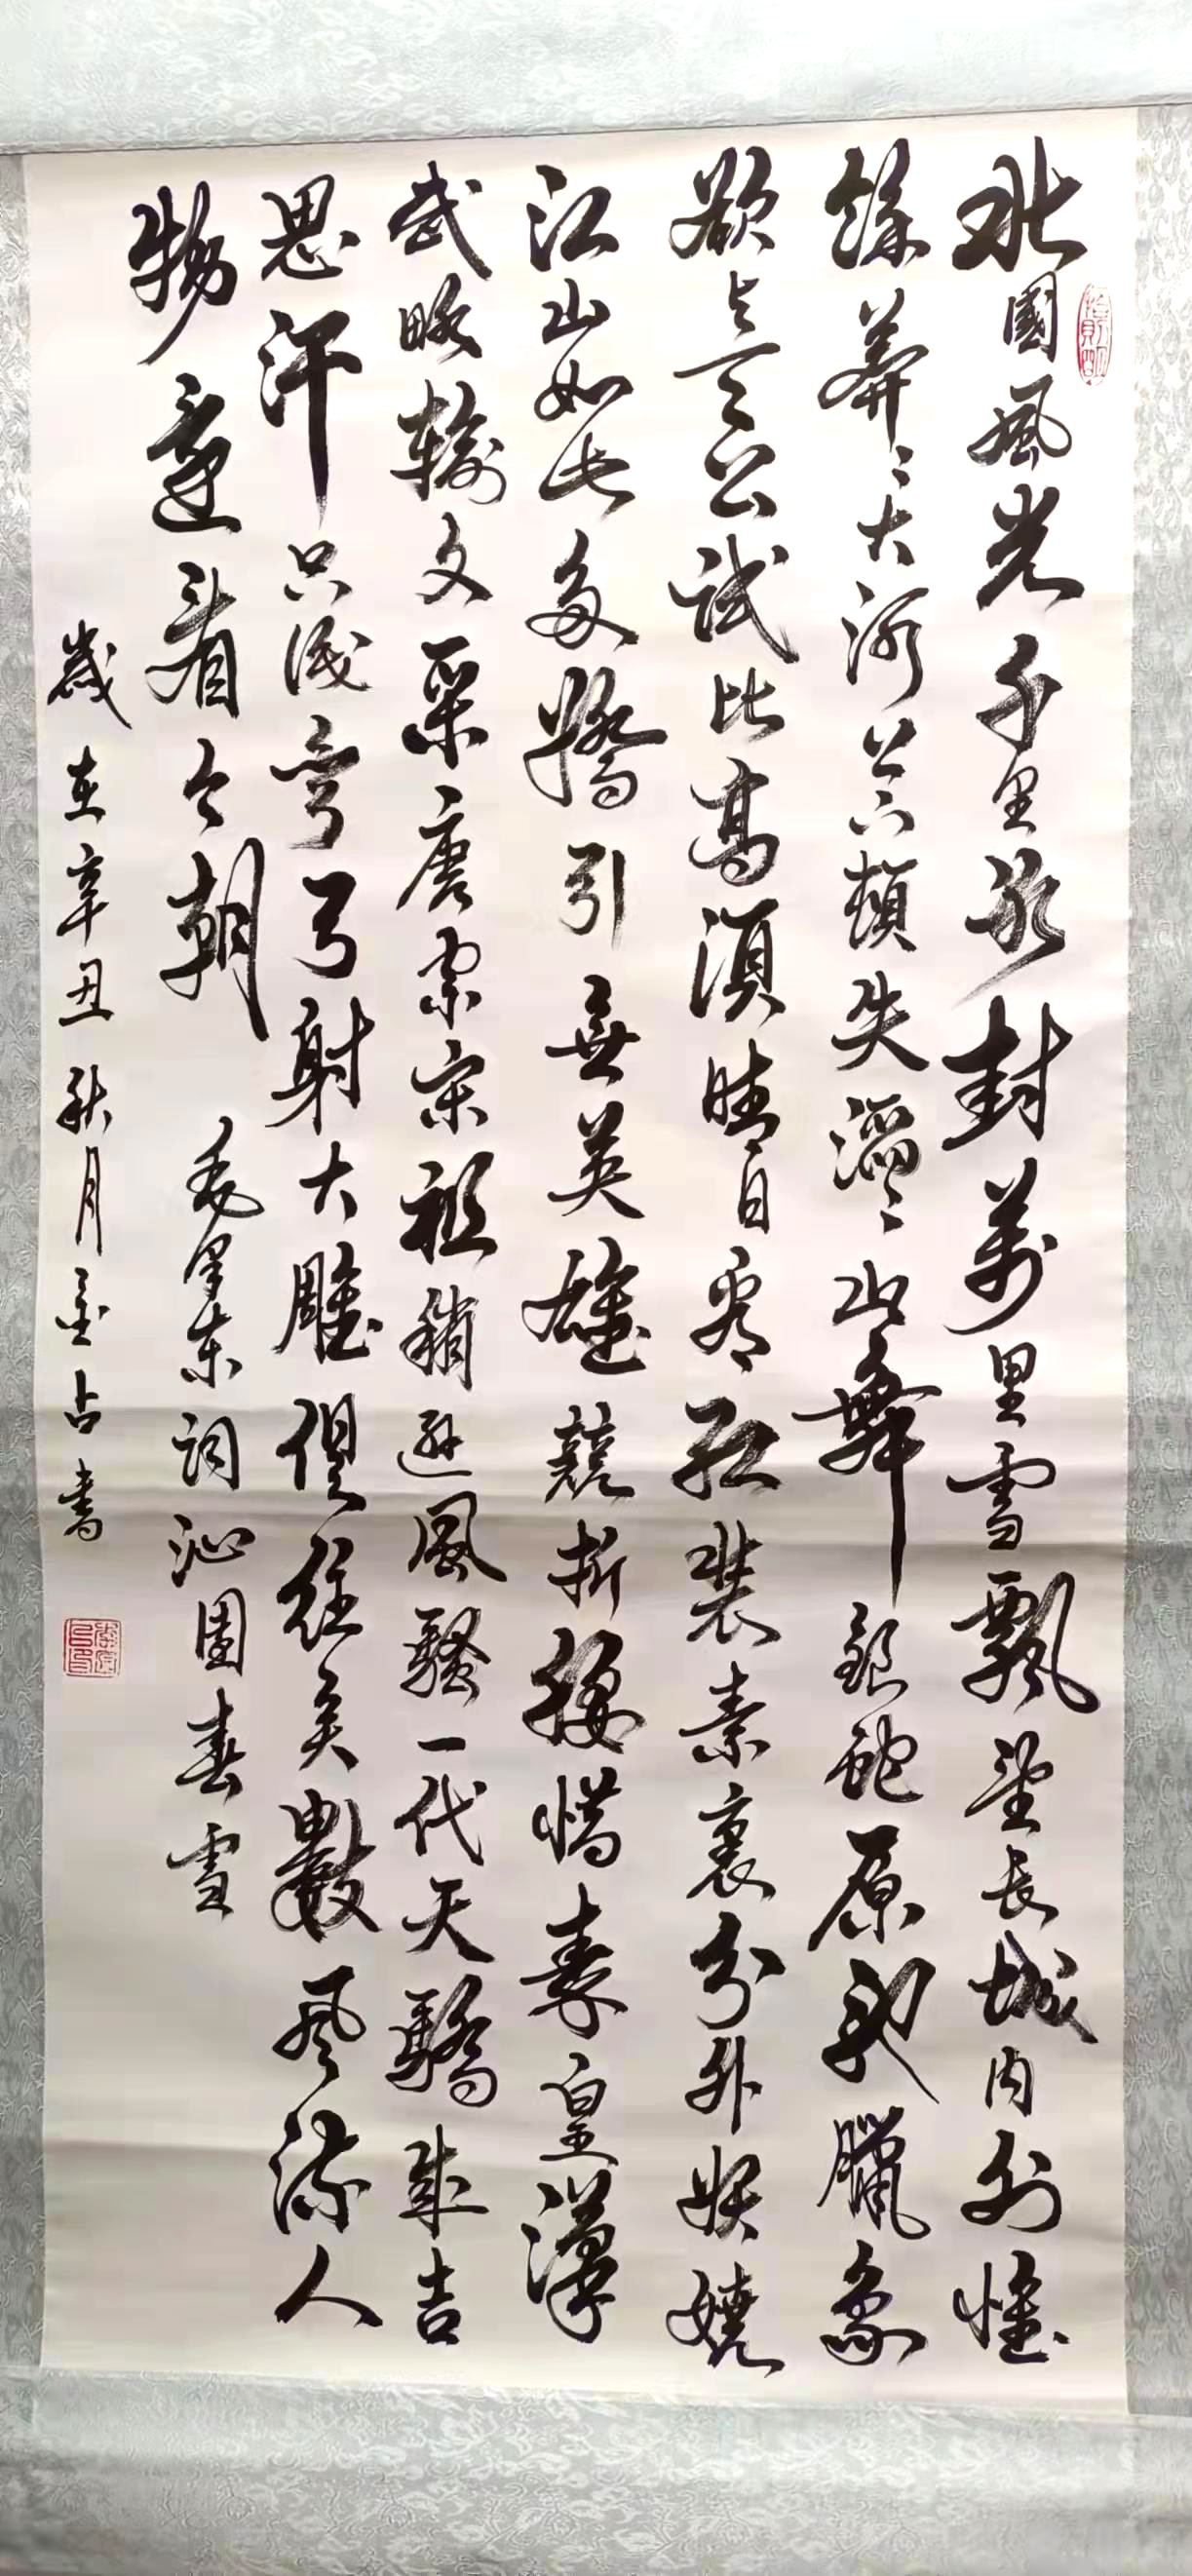 北國風光千里冰封萬里雪飄望長城內外惟
餘莽〻大河上下頓失滔〻山舞銀蛇原馳臘象
欲与天公試比高須晴日看紅裝素裹分外妖嬈
江山如此多嬌引無英雄競折腰惜秦皇漢
武略輸文采唐宗宋祖稍遜風騷一代天驕成吉
思汗只識彎弓射大雕俱往矣數風流人
物還看今朝 毛澤東詞沁園春雪
歲在辛丑秋月金占書